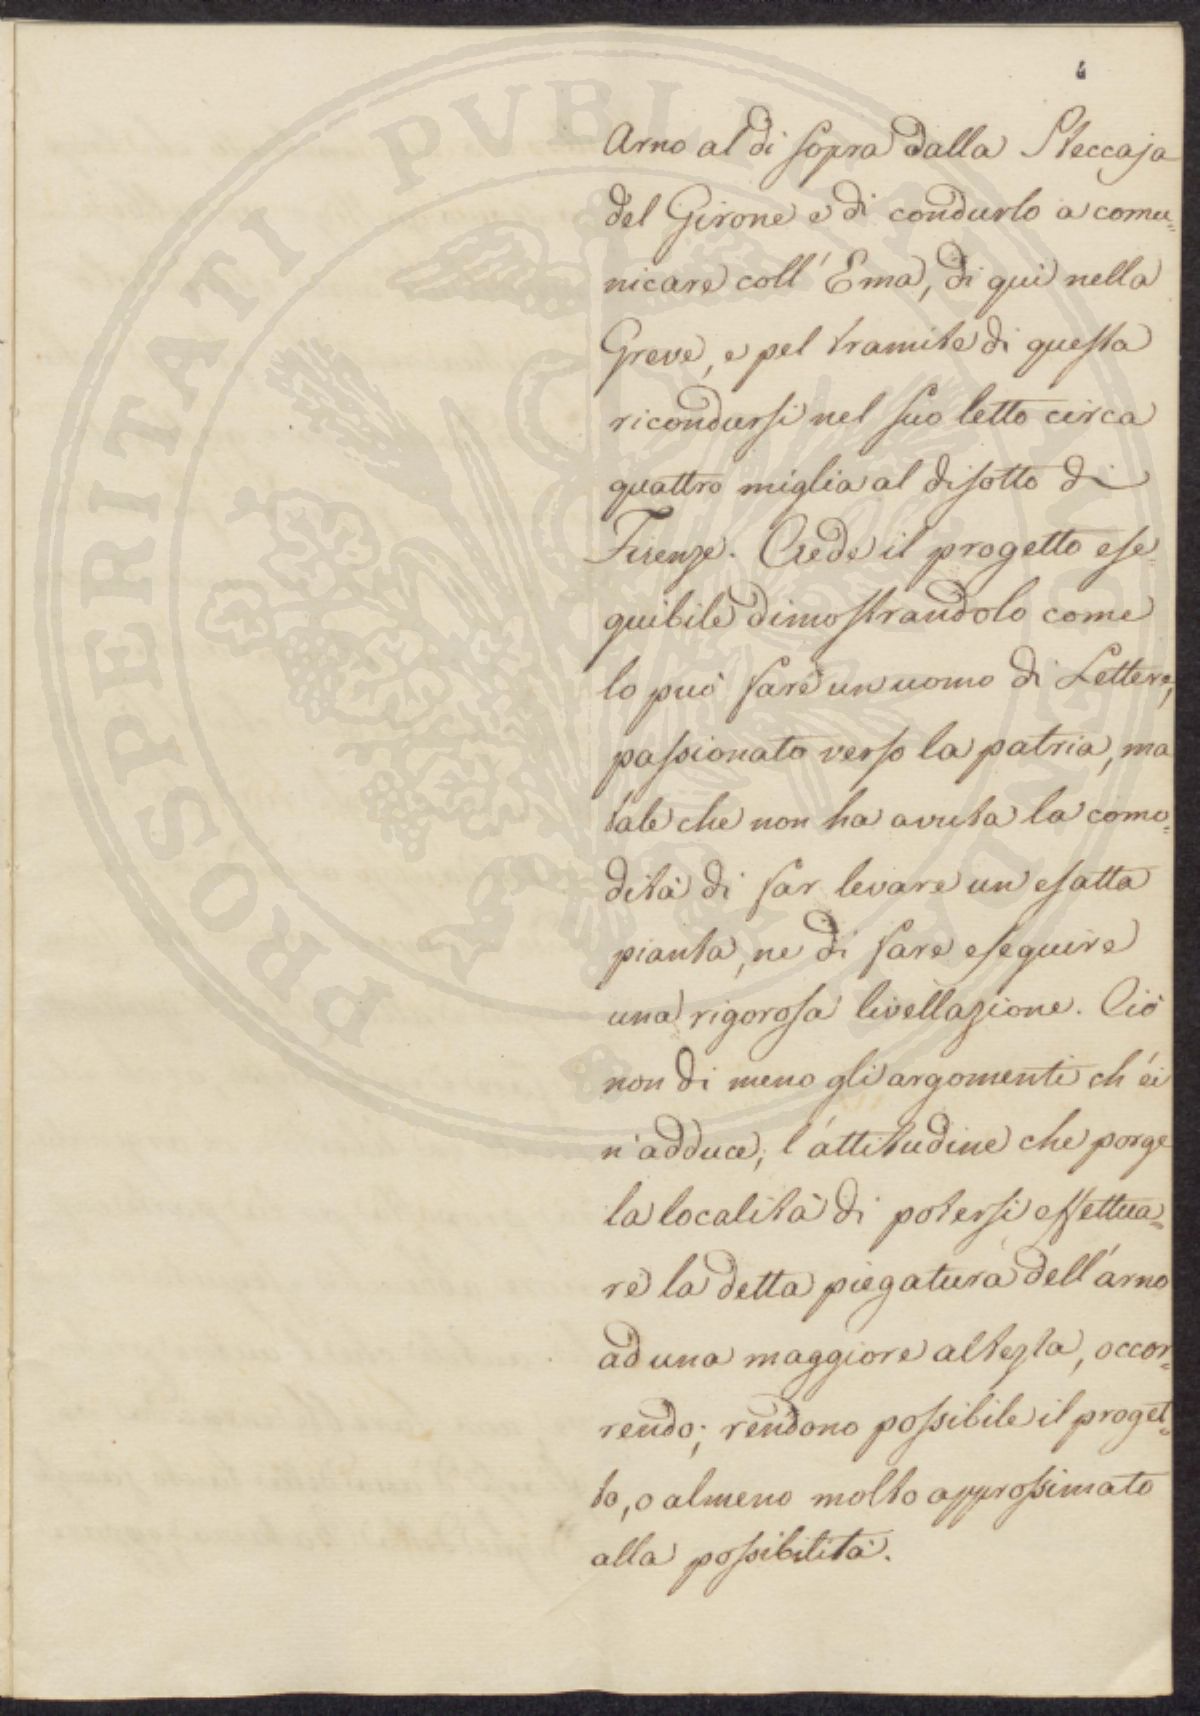 6
Arno al di sopra dalla Steccaja
del Girone e di condurlo a comu=
nicare coll' Ema, di qui nella
Greve, e pel tramite di questa
ricondursi nel suo letto circa
quattro miglia al disotto di
Firenze. Crede il progetto ese=
quibile dimostrandolo come
lo può fare un uomo di Lettere,
passionato verso la patria, ma
tale che non ha avuta la como=
dità di far levare un esatta
pianta, ne di fare eseguire
una rigorosa livellazione. Ciò
non di meno gli argomenti ch'ei
n'adduce, l'attitudine che porge
la località di potersi effettua=
re la detta piegatura dell'arno
ad una maggiore altezza, occor=
rendo; rendono possibile il proget=
to, o almeno molto approssimato
alla possibilità.
PROSPERITATI PVBLI